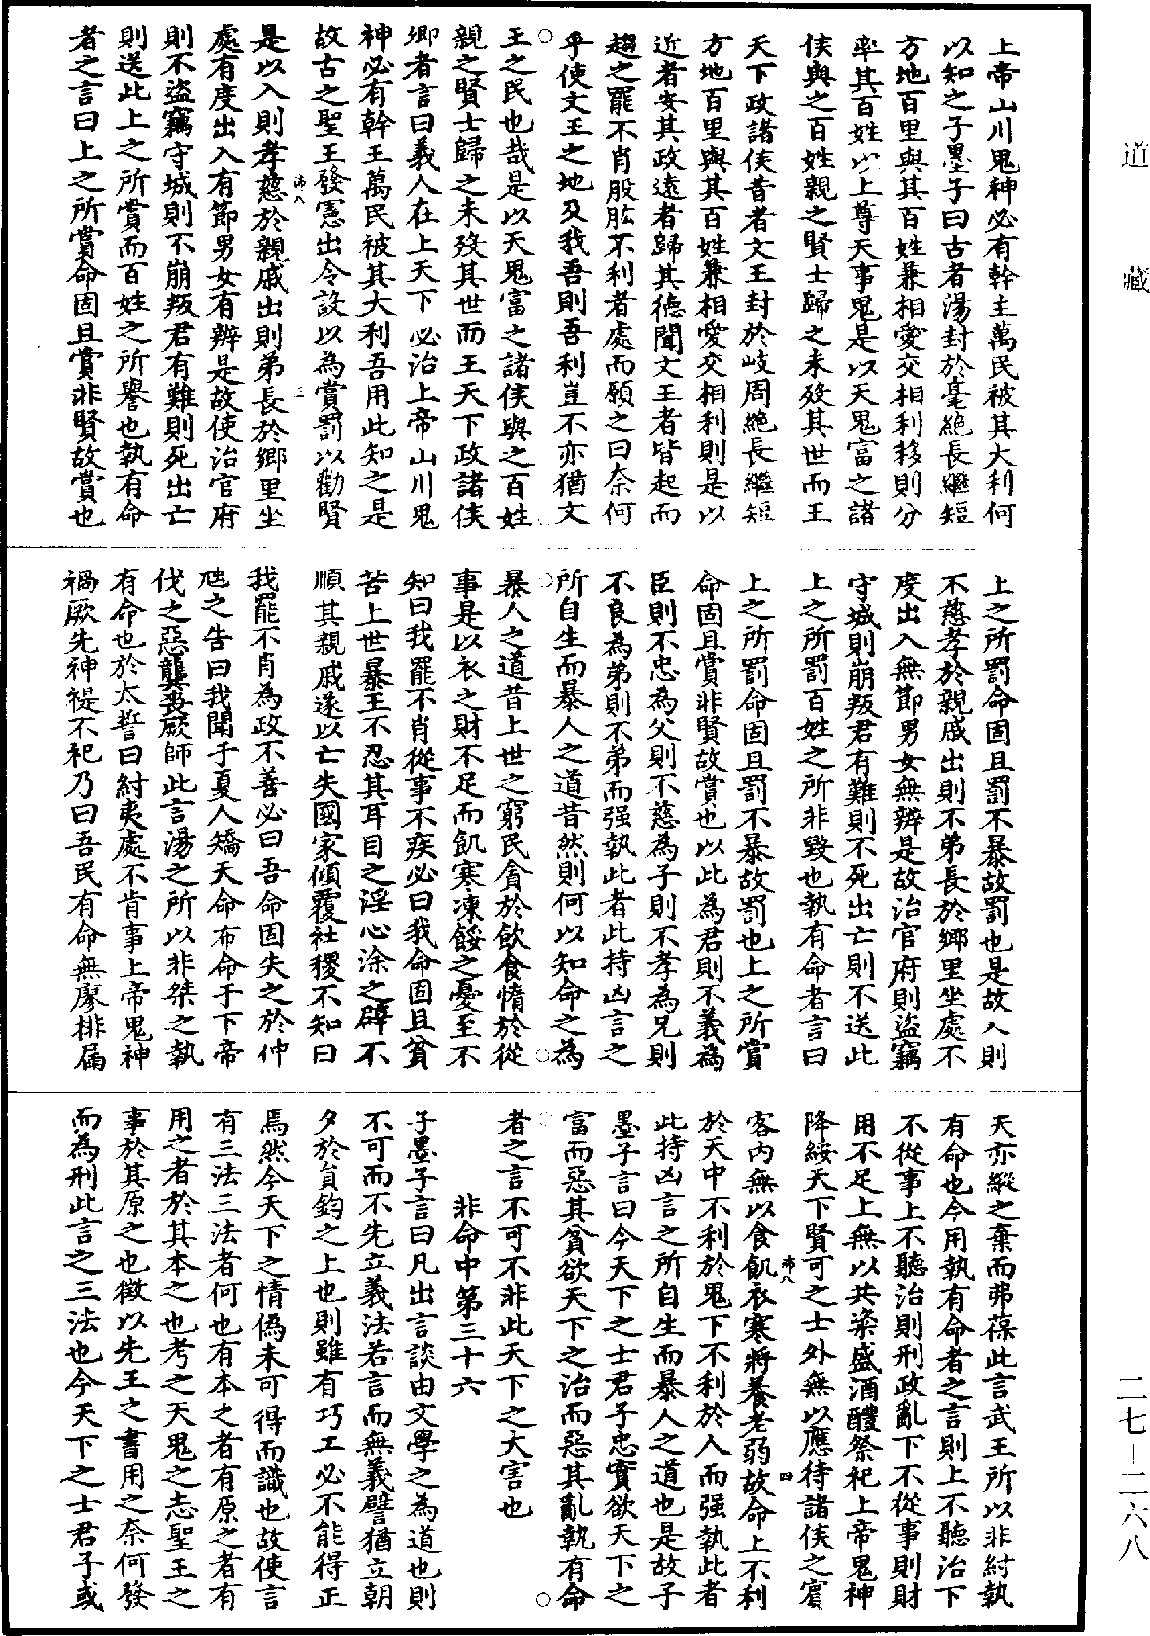 上帝山川鬼神必有幹主萬民被其大利何
以知之子墨子曰古者湯封於亳絕長繼短
方地百里與其百姓兼相愛交相利移則分
率其百姓以上尊天事鬼是以天鬼富之諸
侯與之百姓親之賢士歸之未歿其世而王
天下政諸侯昔者文王封於岐周絕長繼短
方地百里與其百姓兼相愛交相利則是以
近者安其政遠者歸其德聞文王者皆起而
趨之罷不肖股肱不利者處而願之曰奈何
乎使文王之地及我吾則吾利豈不亦猶文
王之民也哉是以天鬼富之諸侯與之百姓
親之賢士歸之未歿其世而王天下政諸侯
鄉者言曰義人在上天下必治上帝山川鬼
神必有幹王萬民被其大利吾用此知之是
故古之聖王發憲出令設以為賞罰以勸賢
是以入則孝慈於親戚出則弟長於鄉里坐
處有度出入有節男女有辨是故使治官府
則不盜竊守城則不崩叛君有難則死出亡
則送此上之所賞而百姓之所譽也執有命
者之言曰上之所賞命固且賞非賢故賞也
上之所罰命固且罰不暴故罰也是故入則
不慈孝於親戚出則不弟長於鄉里坐處不
度出入無節男女無辨是故治官府則盜竊
守城則崩叛君有難則不死出亡則不送此
上之所罰百姓之所非毀也執有命者言曰
上之所罰命固且罰不暴故罰也上之所賞
命固且賞非賢故賞也以此為君則不義為
臣則不忠為父則不慈為子則不孝為兄則
不良為弟則不弟而强執此者此持凶言之
所自生而暴人之道昔然則何以知命之為
暴人之道昔上世之窮民貪於飲食惰於從
事是以衣之財不足而飢寒凍餒之憂至不
知曰我罷不肖從事不疾必曰我命固且貧
苦上世暴王不忍其耳目之淫心涂之辟不
順其親戚遂以亡失國家傾覆社稷不知曰
我罷不肖為政不善必曰吾命固失之於仲
虺之告曰我聞于夏人矯天命布命于下帝
伐之惡龔喪厥師此言湯之所以非桀之執
有命也於太誓曰紂夷處不肯事上帝鬼神
禍厥先神禔不祀乃曰吾民有命無廖排扁
天亦縱之棄而弗葆此言武王所以非紂執
有命也今用執有命者之言則上不聽治下
不從事上不聽治則刑政亂下不從事則財
用不足上無以共粢盛酒醴祭祀上帝鬼神
降綏天下賢可之士外無以應待諸侯之賓
客內無以食飢衣寒將養老弱故命上不利
於天中不利於鬼下不利於人而强執此者
此持凶言之所自生而暴人之道也是故子
墨子言曰今天下之士君子忠實欲天下之
富而惡其貧欲天下之治而惡其亂執有命
者之言不可不非此天下之大害也
非命中第三十六
子墨子言曰凡出言談由文學之為道也則
不可而不先立義法若言而無義譬猶立朝
夕於貟鈞之上也則雖有巧工必不能得正
焉然今天下之情偽未可得而識也故使言
有三法三法者何也有本之者有原之者有
用之者於其本之也考之天鬼之志聖王之
事於其原之也徵以先王之書用之奈何發
而為刑此言之三法也今天下之士君子或
沛八
三
沛八
四
道藏
二七－二六八